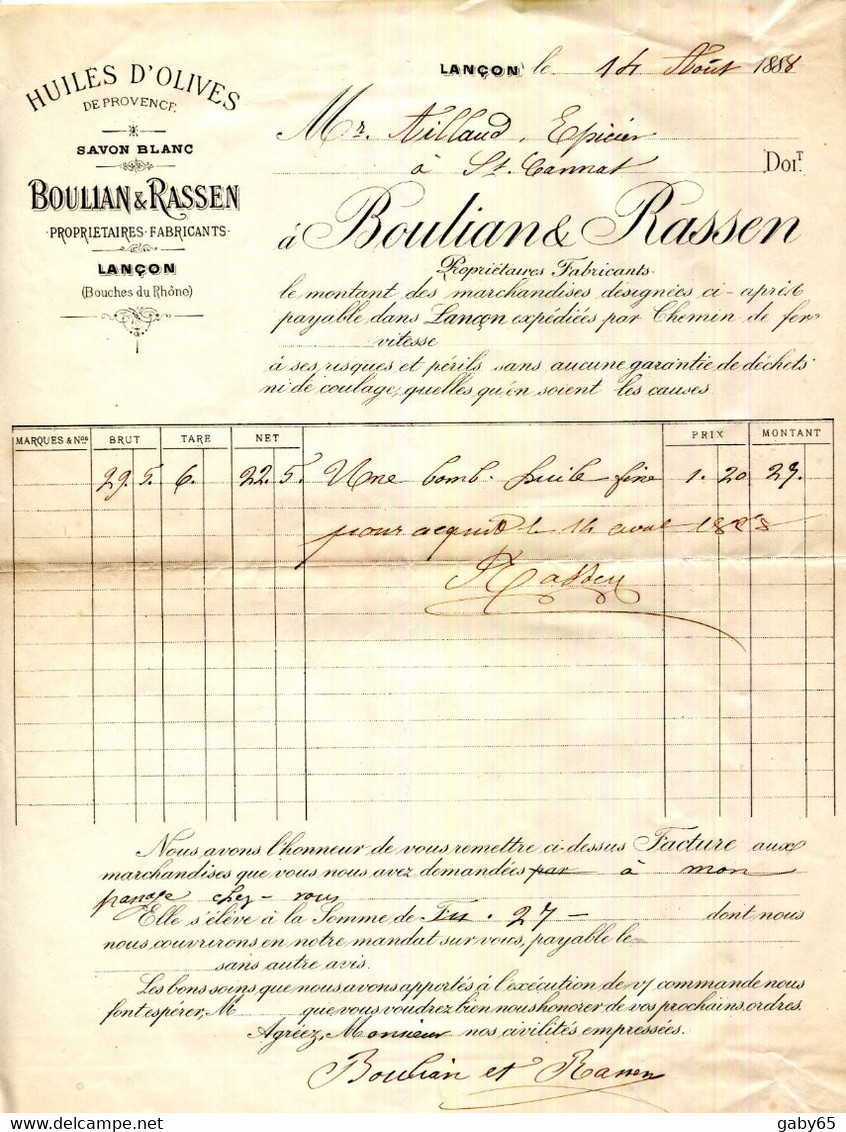 HUILES D'OLIVES
DE PROVENCE
SAVON BLANC
BOULIAN & RASSEN
·PROPRIETAIRES·FABRICANTS·
LANÇON
(Bouches du Rhône)
LANÇON le 14 Août 1888
Mr. Aillaud, Epicier
à St. Cannat DOIT
à Boulian & Rassen
Propriétaires Fabricants.
le montant des marchandises désignées ci-après
payable dans Lançon expédiées par Chemin de fer
vitesse
à ses risques et périls sans aucune garantie de déchets
ni de coulage, quelles qu'en soient les causes
MARQUES & Nos BRUT TARE NET PRIX MONTANT
29. 5. 6. 22. 5. Une bomb. huile fine 1. 20 27.
pour acquit le 14 1888
Rassen
Nous avons l'honneur de vous remettre ci-dessus Facture aux
marchandises que vous nous avez demandées par à mon
passage chez-vous
Elle s'élève à la Somme de Frs. 27 - dont nous
nous couvrirons en notre mandat sur vous, payable le
sans autre avis.
Les bons soins que nous avons apportés à l'exécution de v/ commande nous
font espérer, M que vous voudrez bien nous honorer de vos prochains ordres.
Agréez, Monsieur nos civilités empressées.
Boulian et Rassen
gaby65